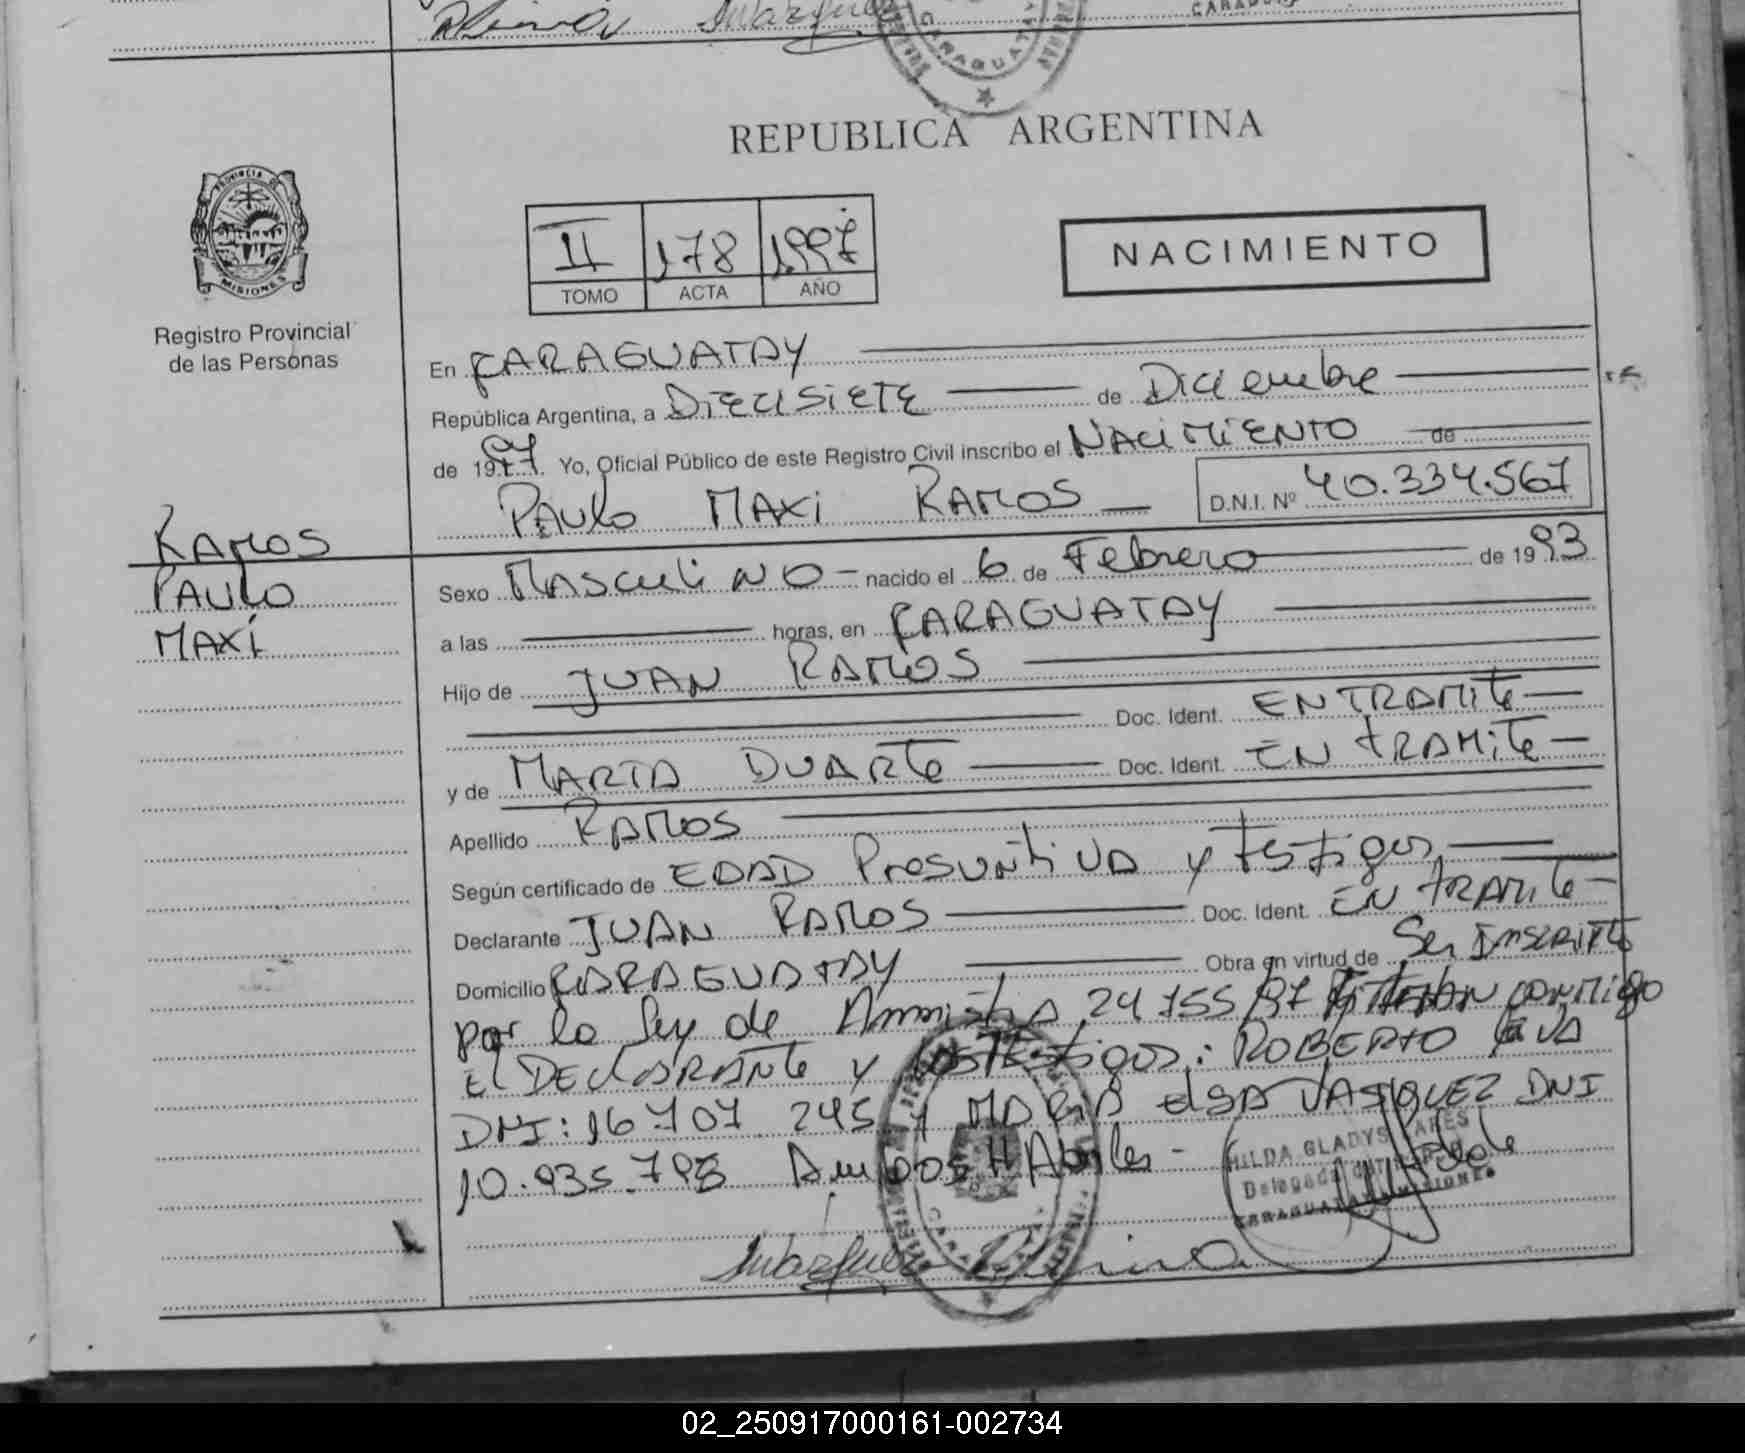 CARAGUATAY
REPUBLICA ARGENTINA
PROVINCIA DE
MISIONES
Registro Provincial
de las Personas
II 178 1997
TOMO ACTA AÑO
NACIMIENTO
En CARAGUATAY
República Argentina, a DIECISIETE de Diciembre
de 1997. Yo, Oficial Público de este Registro Civil inscribo el NACIMIENTO de
PAULO MAXI RAMOS D.N.I. Nº 40.334.567
RAMOS
PAULO
MAXI
Sexo MASCULINO - nacido el 6 de Febrero de 1993
a las horas, en CARAGUATAY
Hijo de JUAN RAMOS
Doc. Ident. EN TRAMITE
y de MARTA DUARTE Doc. Ident. EN TRAMITE
Apellido RAMOS
Según certificado de EDAD Presuntiva y testigos
Declarante JUAN RAMOS Doc. Ident. EN TRAMITE
Domicilio CARAGUATAY Obra en virtud de Ser Inscripto
por la Ley de Amnistia 24755/97 Firman conmigo
El DECLARANTE y los Testigos: ROBERTO
DNI: 16.707.245 y MARIA ELSA VASQUEZ DNI
10.935.798 Ambos Habiles -
HILDA GLADYS
Delegada
CARAGUATAY MISIONES
CARAGUATAY
02_250917000161-002734